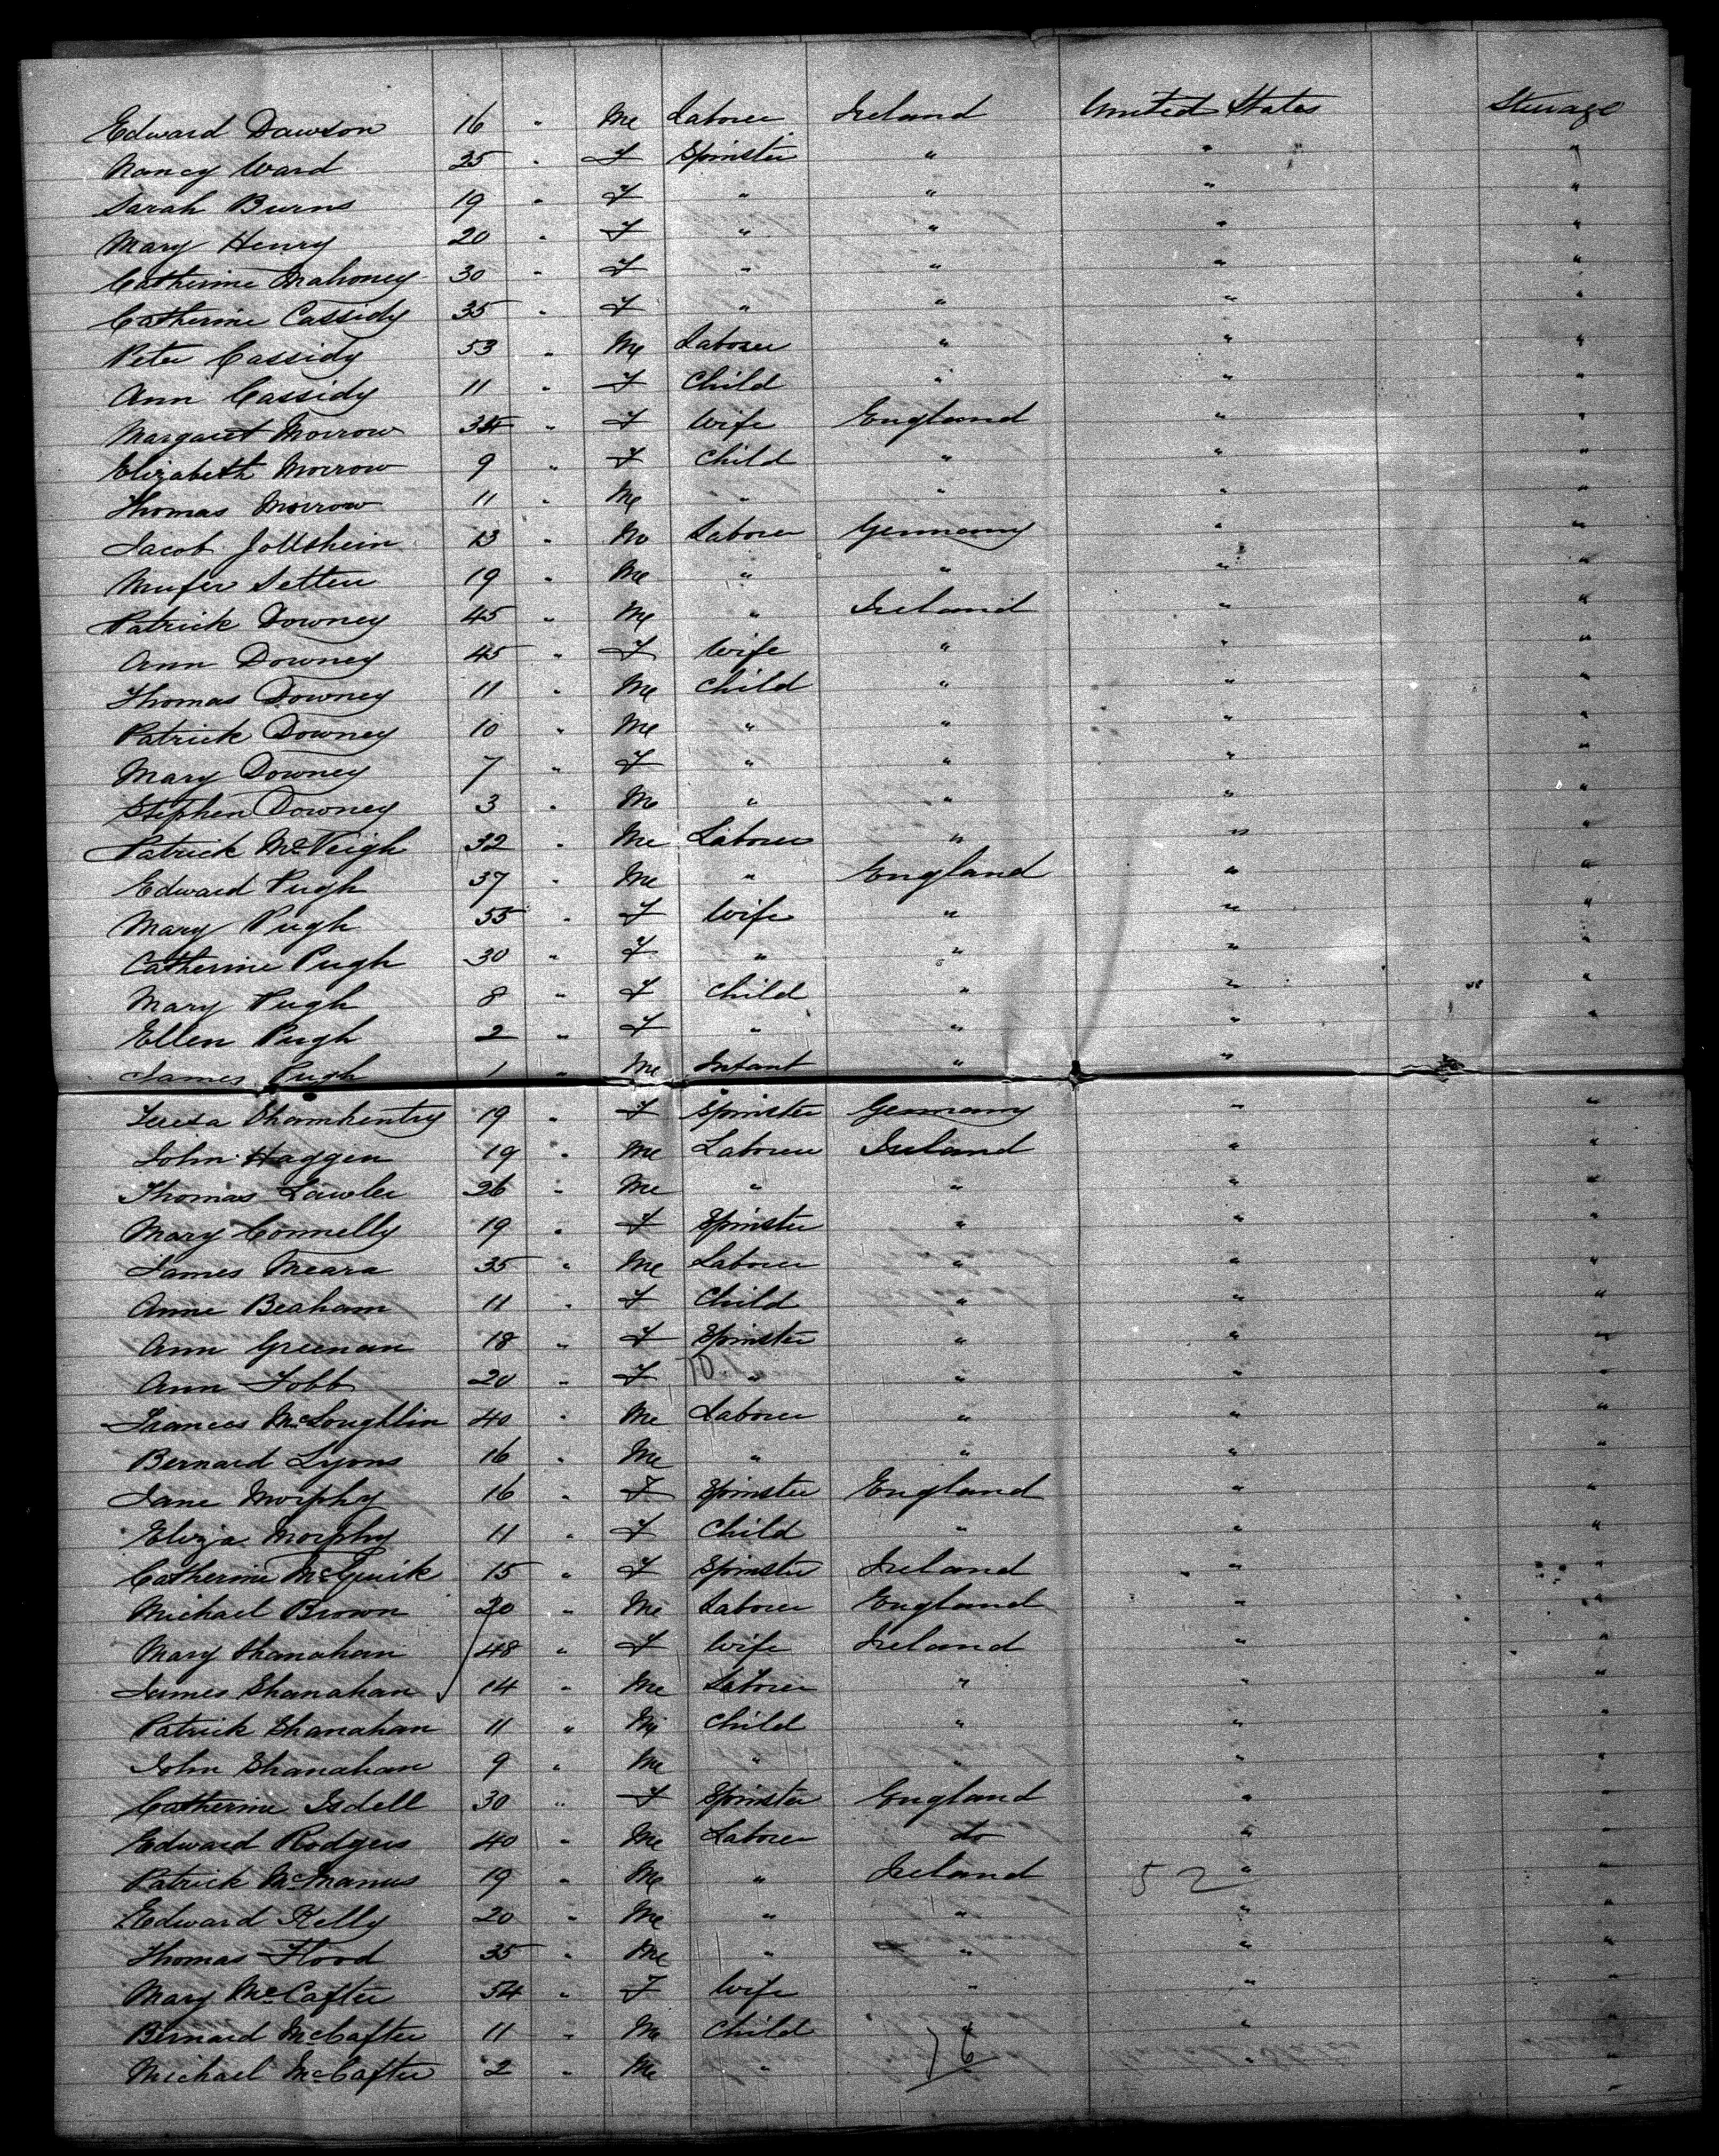 Edward Dawson 16 " Me Laborer Ireland United States Steerage
Nancy Ward 25 " F Spinster " " "
Sarah Burns 19 " F " " " "
Mary Henry 20 " F " " " "
Catherine Mahoney 30 " F " " " "
Catherine Cassidy 35 " F " " " "
Peter Cassidy 53 " Me Laborer " " "
Ann Cassidy 11 " F Child " " "
Margaret Morrow " F Wife England " "
Elizabeth Morrow 9 " F Child " " "
Thomas Morrow 11 " Me " " " "
Jacob " M Laborer Germany " "
19 " Me " " " "
Patrick Downey 45 " Me " Ireland " "
Ann Downey 45 " F Wife " " "
Thomas Downey 11 " Me Child " " "
Patrick Downey 10 " Me " " " "
Mary Downey 7 " F " " " "
Stephen Downey 3 " Me " " " "
Patrick McVeigh 32 " Me Laborer " " "
Edward Pugh 37 " Me " England " "
Mary Pugh 55 " F Wife " " "
Catherine Pugh 30 " F " " " "
Mary Pugh 8 " F Child " " "
Ellen Pugh 2 " F " " " "
James Pugh 1 " Me Infant " "
Teresa 19 " F Spinster Germany " "
John Haggen 19 " Me Laborer Ireland " "
Thomas Lawler 26 " Me " " " "
Mary Connelly 19 " F Spinster " " "
James Meara 35 " Me Laborer " " "
Anne Beaham 11 " F Child " " "
Ann Greenan 18 " F Spinster " " "
Ann 20 " F " " " "
Frances McLoughlin 40 " Me Laborer " " "
Bernard Lyons 16 " Me " " " "
Jane Morphy 16 " F Spinster England " "
Eliza Morphy 11 " F Child " " "
Catherine McGuik 15 " F Spinster Ireland " "
Michael Brown 20 " Me Laborer England " "
Mary Shanahan 48 " F Wife Ireland " "
James Shanahan 14 " Me Laborer " " "
Patrick Shanahan 11 " Me Child " " "
John Shanahan 9 " Me " " " "
Catherine Isdell 30 " F Spinster England " "
Edward Rodgers 40 " Me Laborer do " "
Patrick McManus 19 " Me " Ireland 52 " "
Edward Kelly 20 " Me " " " "
Thomas Flood 35 " Me " " " "
Mary McCafter 54 " F Wife " " "
Bernard McCafter 11 " Me Child " " "
Michael McCafter 2 " Me " 76 " "